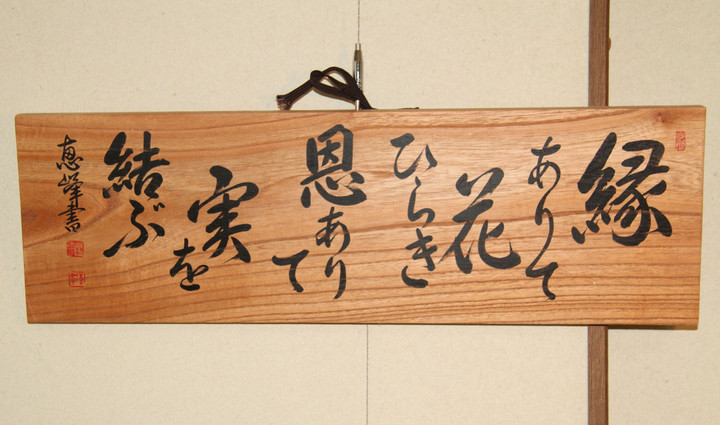 縁
ありて
花
ひらき
恩
あり
て
実
を
結ぶ
恵峰書